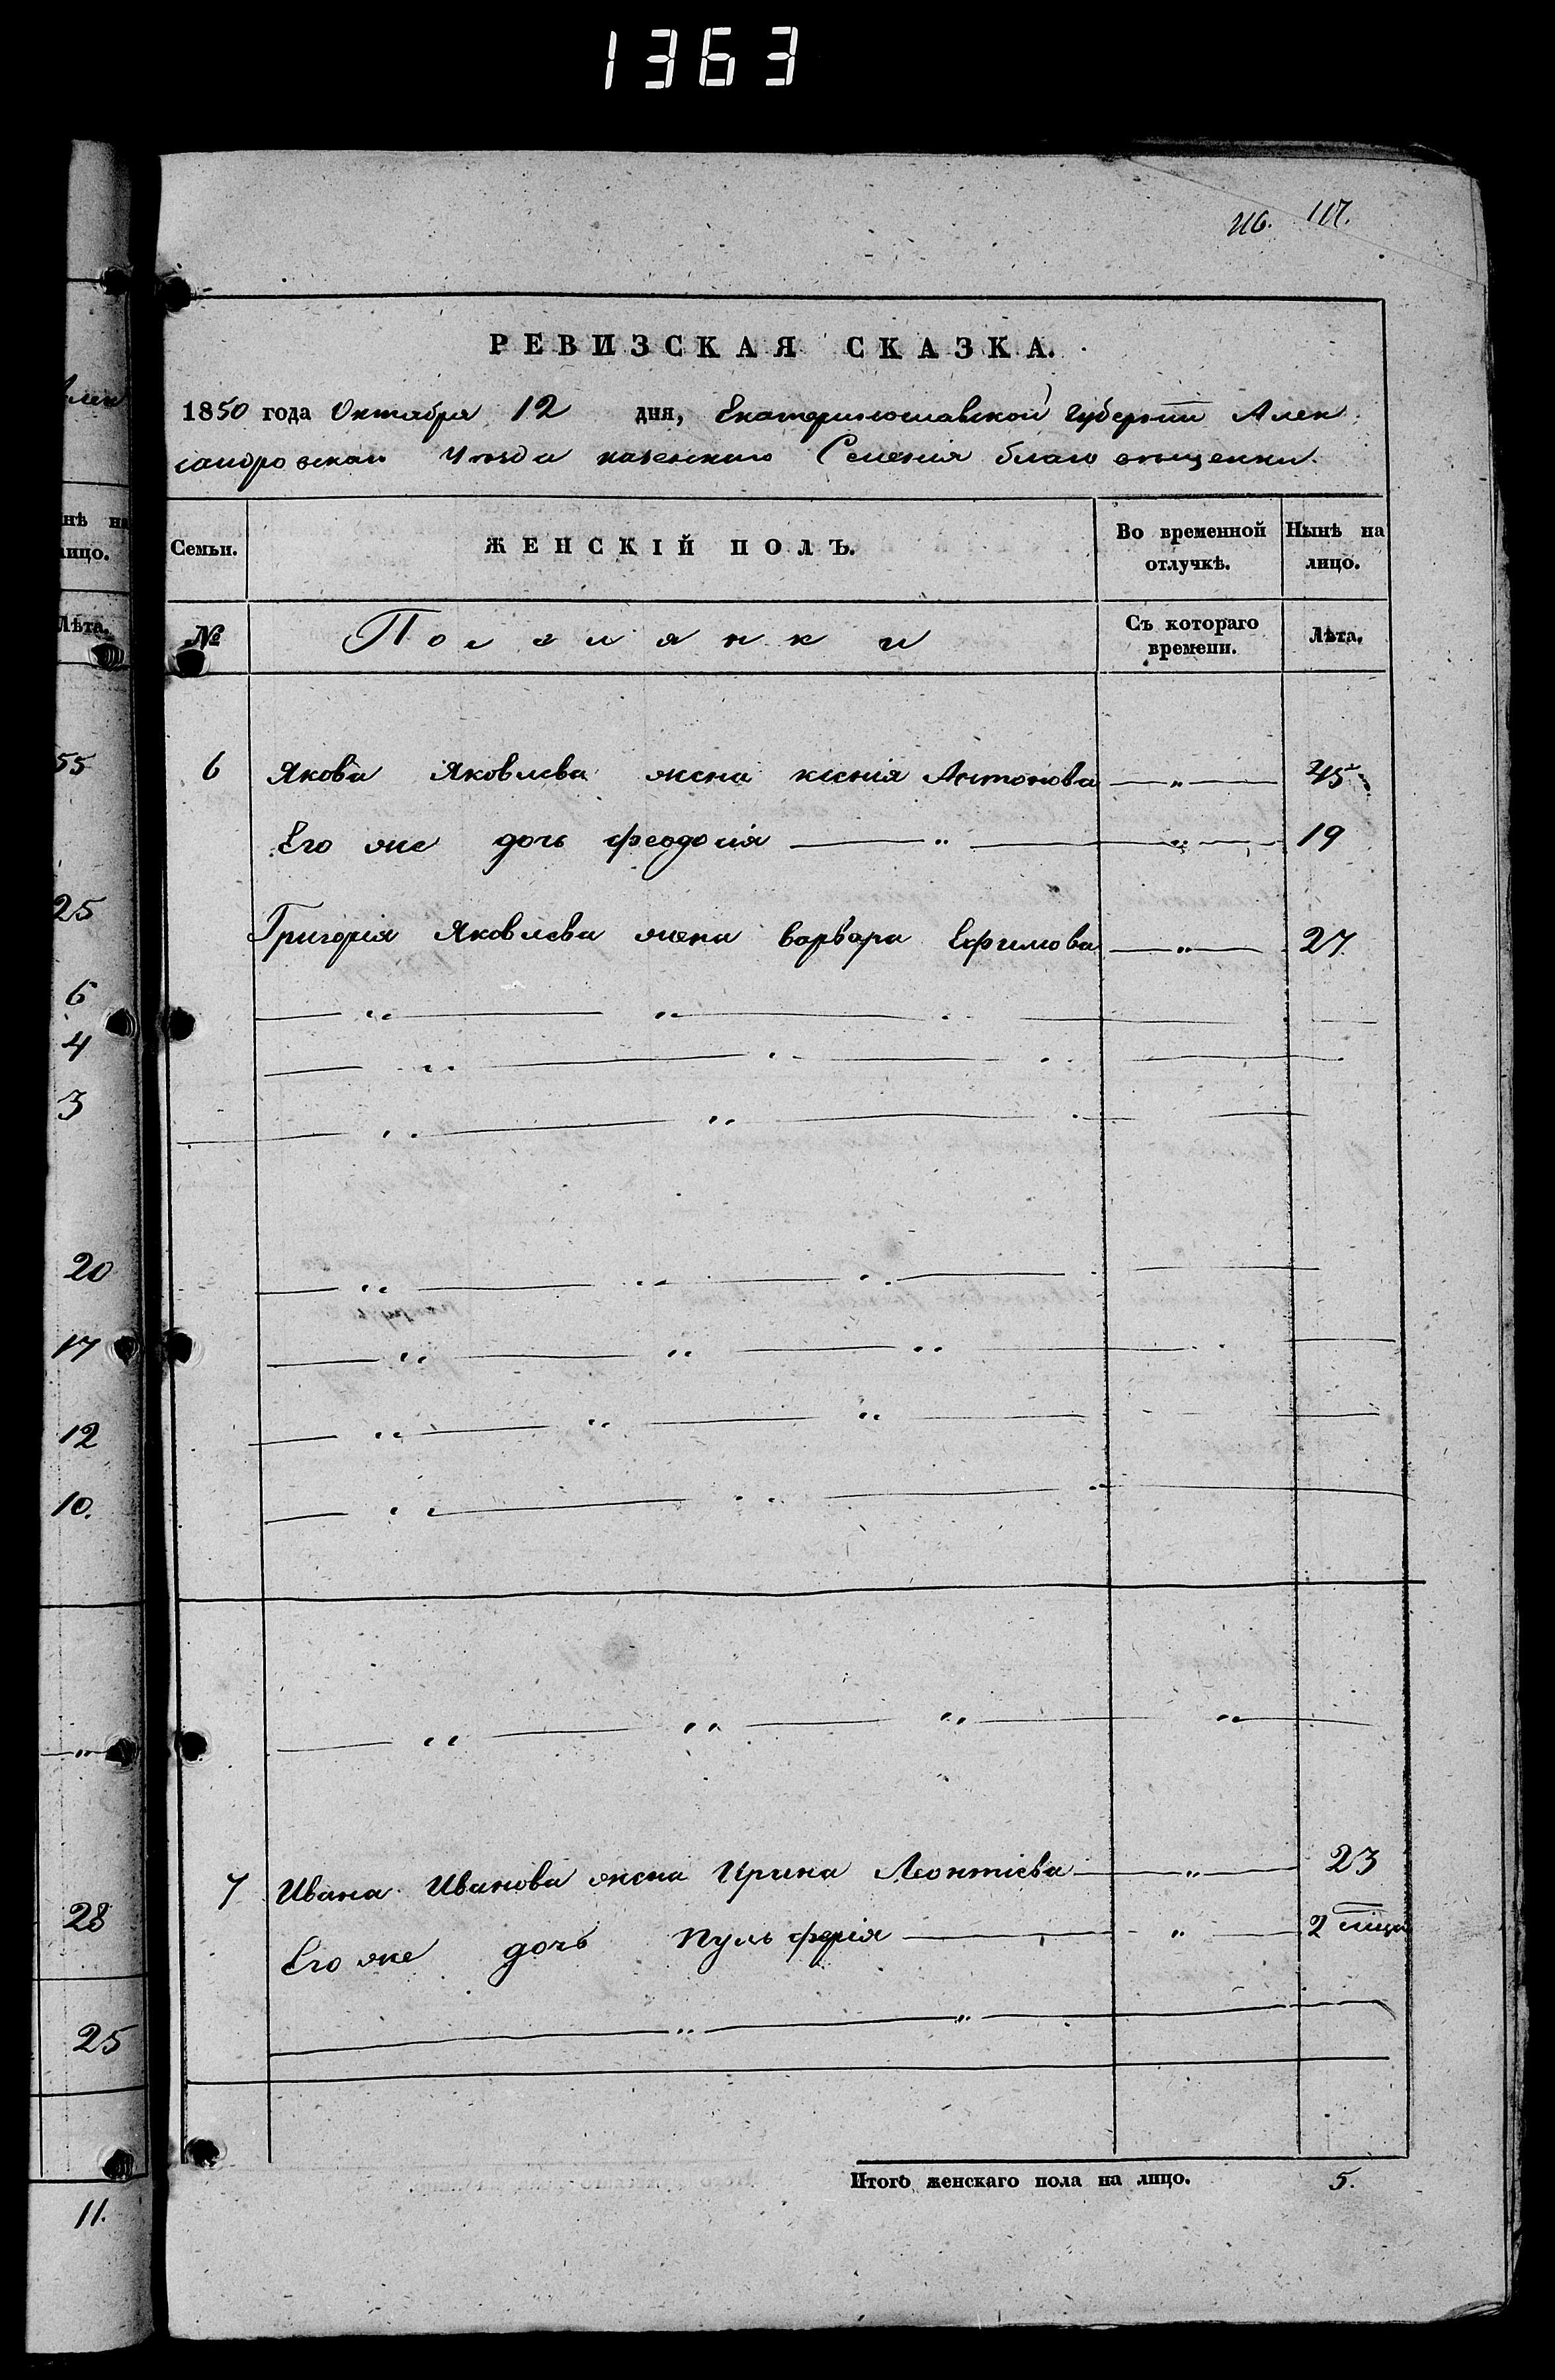 1363
116. 117.
РЕВИЗСКАЯ СКАЗКА.
1850 года Октября 12 дня, Екатеринославской Губернии Алек
сандровскаго Уезда казеннаго Селенія благовещенки.
Семьи.
ЖЕНСКІЙ ПОЛЪ.
Во временной отлучкѣ.
Нынѣ на лицо.
№
Поселянки
Съ котораго времени.
Лѣта.
6 Якова Яковлева жена ксенія Антонова — " — 45
Его же дочь феодосія — " — " — 19
Григорія Яковлева жена варвара Ефимова — " — 27
7 Ивана Иванова жена Ирина Леонтіева — " — 23
Его же дочь пульферія — " — 2 месяца
Итого женскаго пола на лицо. 5.
нѣ на
лицо.
Лѣта.
55
25
6
4
3
20
17
12
10.
— " —
28
25
11.